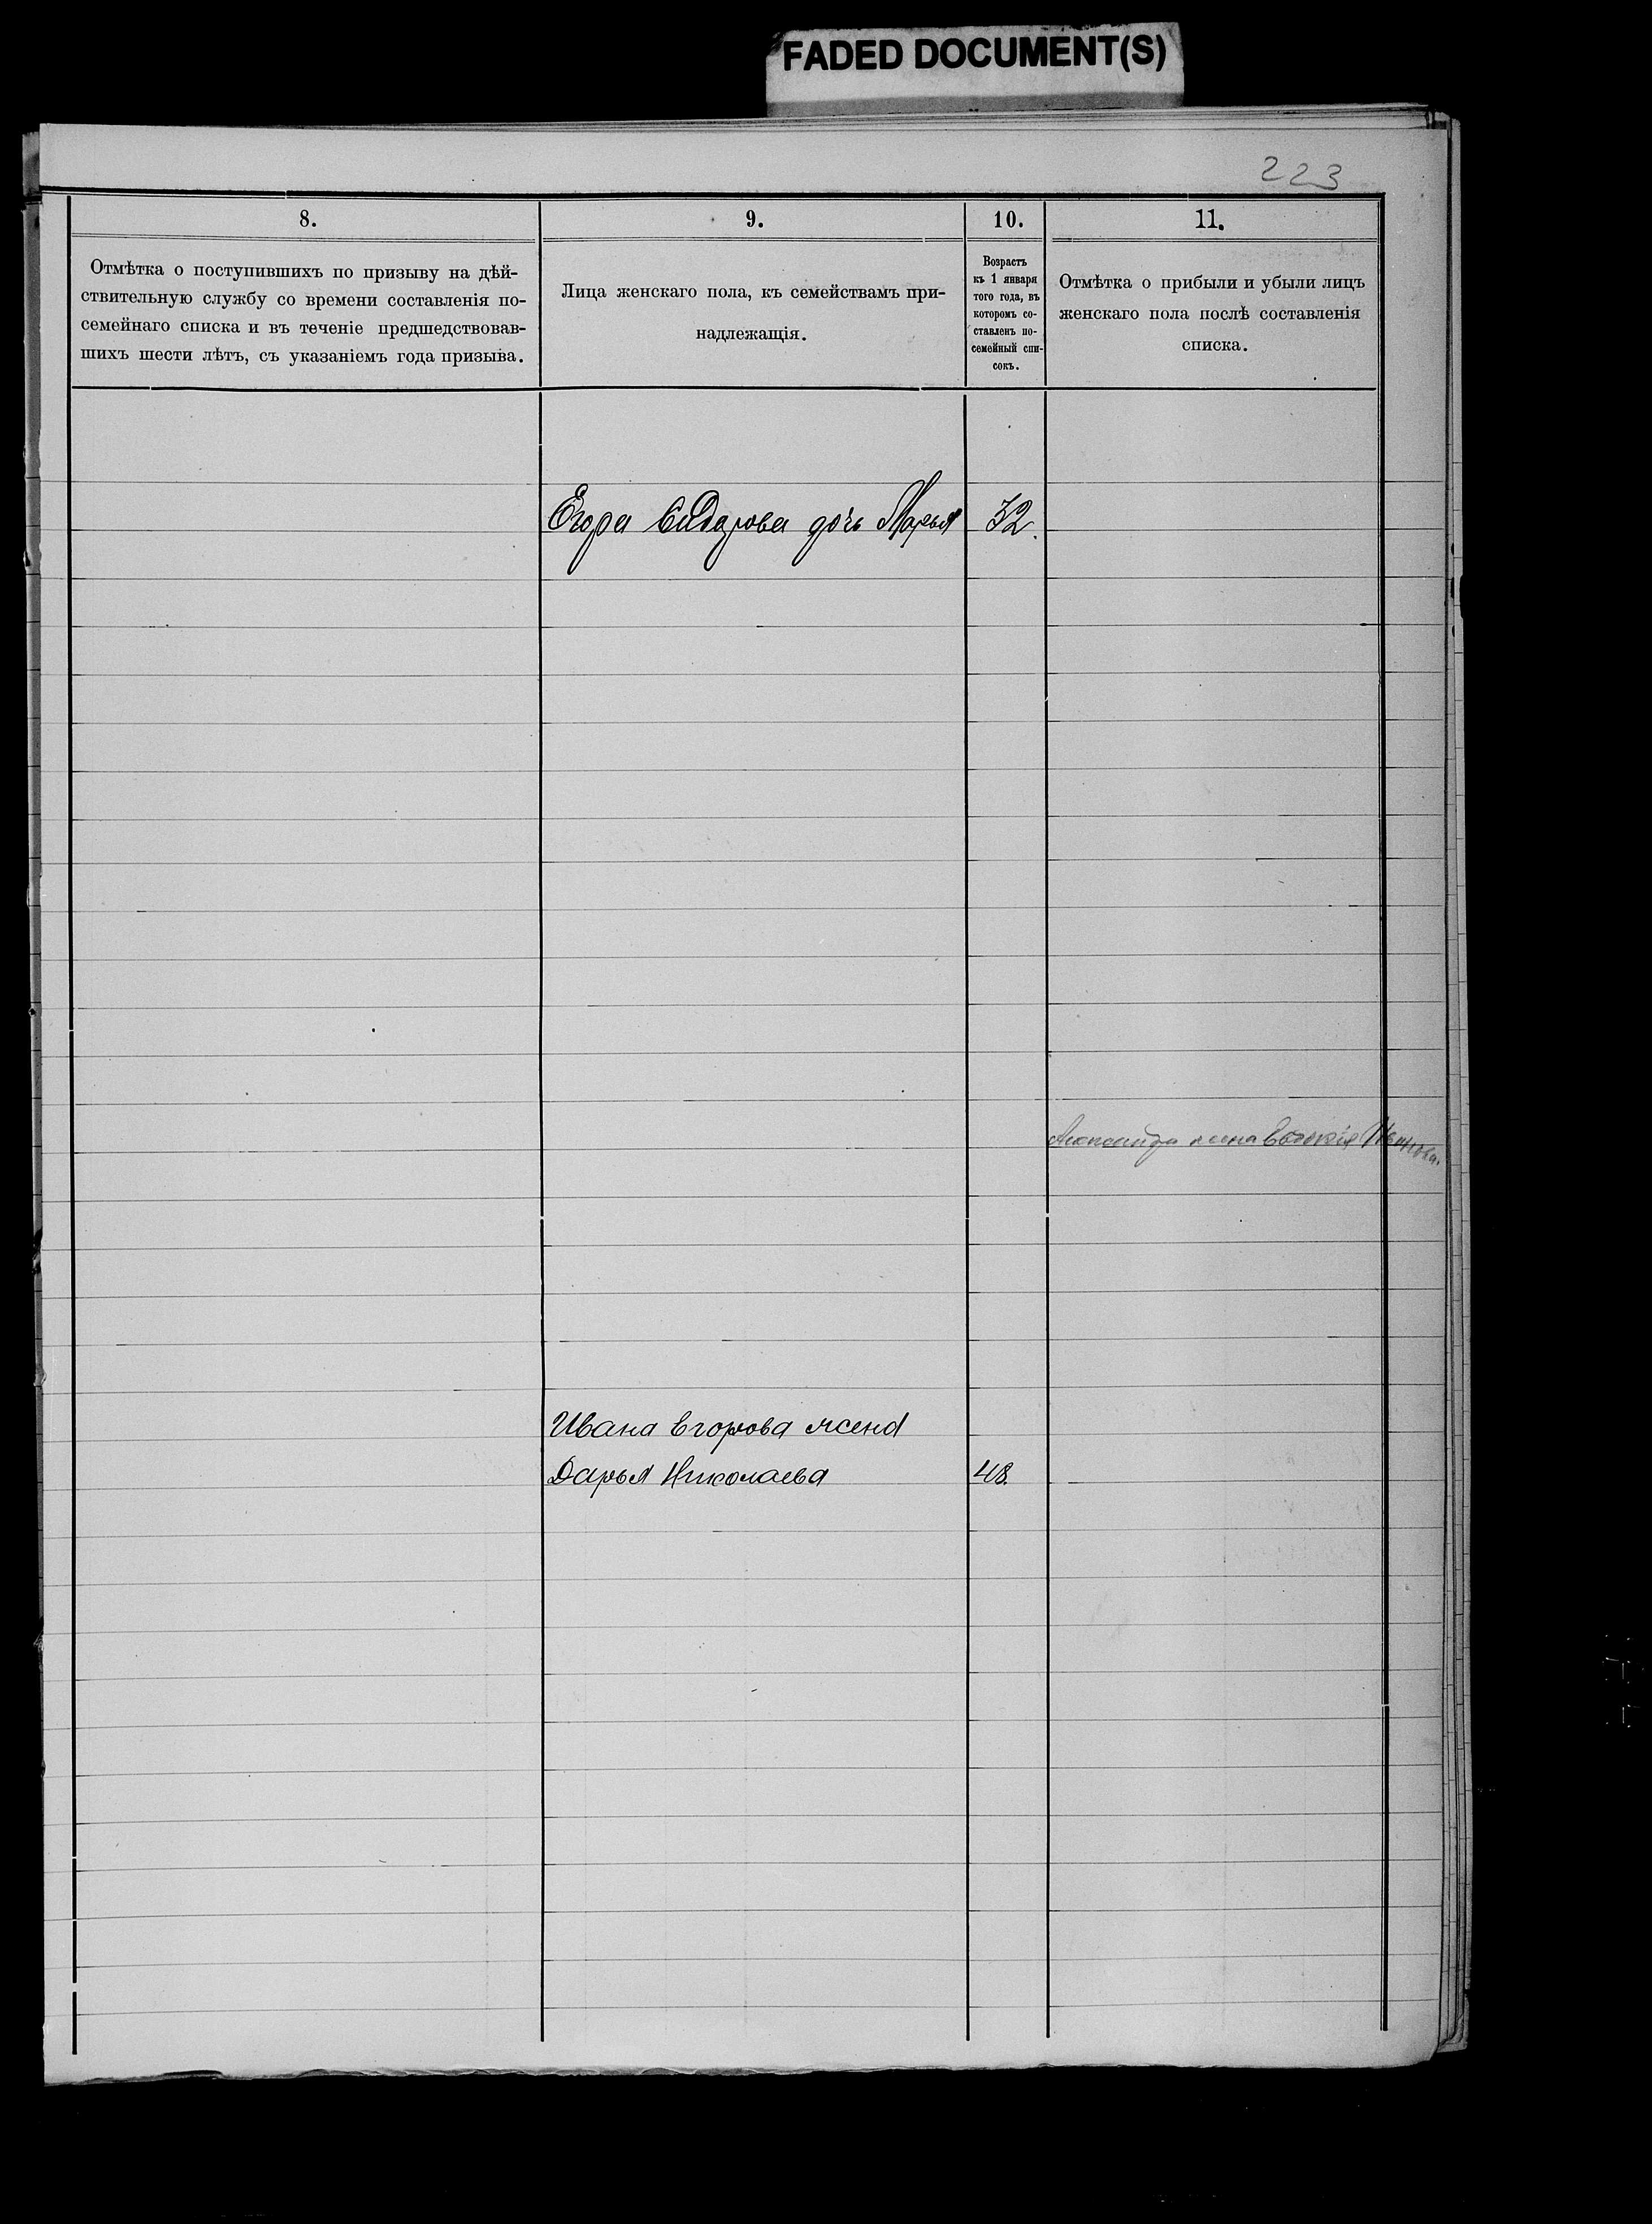 FADED DOCUMENT(S)
223
8.
Отмѣтка о поступившихъ по призыву на дѣй-
ствительную службу со времени составленія по-
семейнаго списка и въ теченіе предшедствовав-
шихъ шести лѣтъ, съ указаніемъ года призыва.
9.
Лица женскаго пола, къ семействамъ при-
надлежащія.
10.
Возрастъ
къ 1 января
того года, въ
которомъ со-
ставленъ по-
семейный спи-
сокъ.
11.
Отмѣтка о прибыли и убыли лицъ
женскаго пола послѣ составленія
списка.
Егора Сидорова дочь Марья 32.
Александра жена Евдокія Иванова.
Ивана Егорова жена
Дарья Николаева 48.